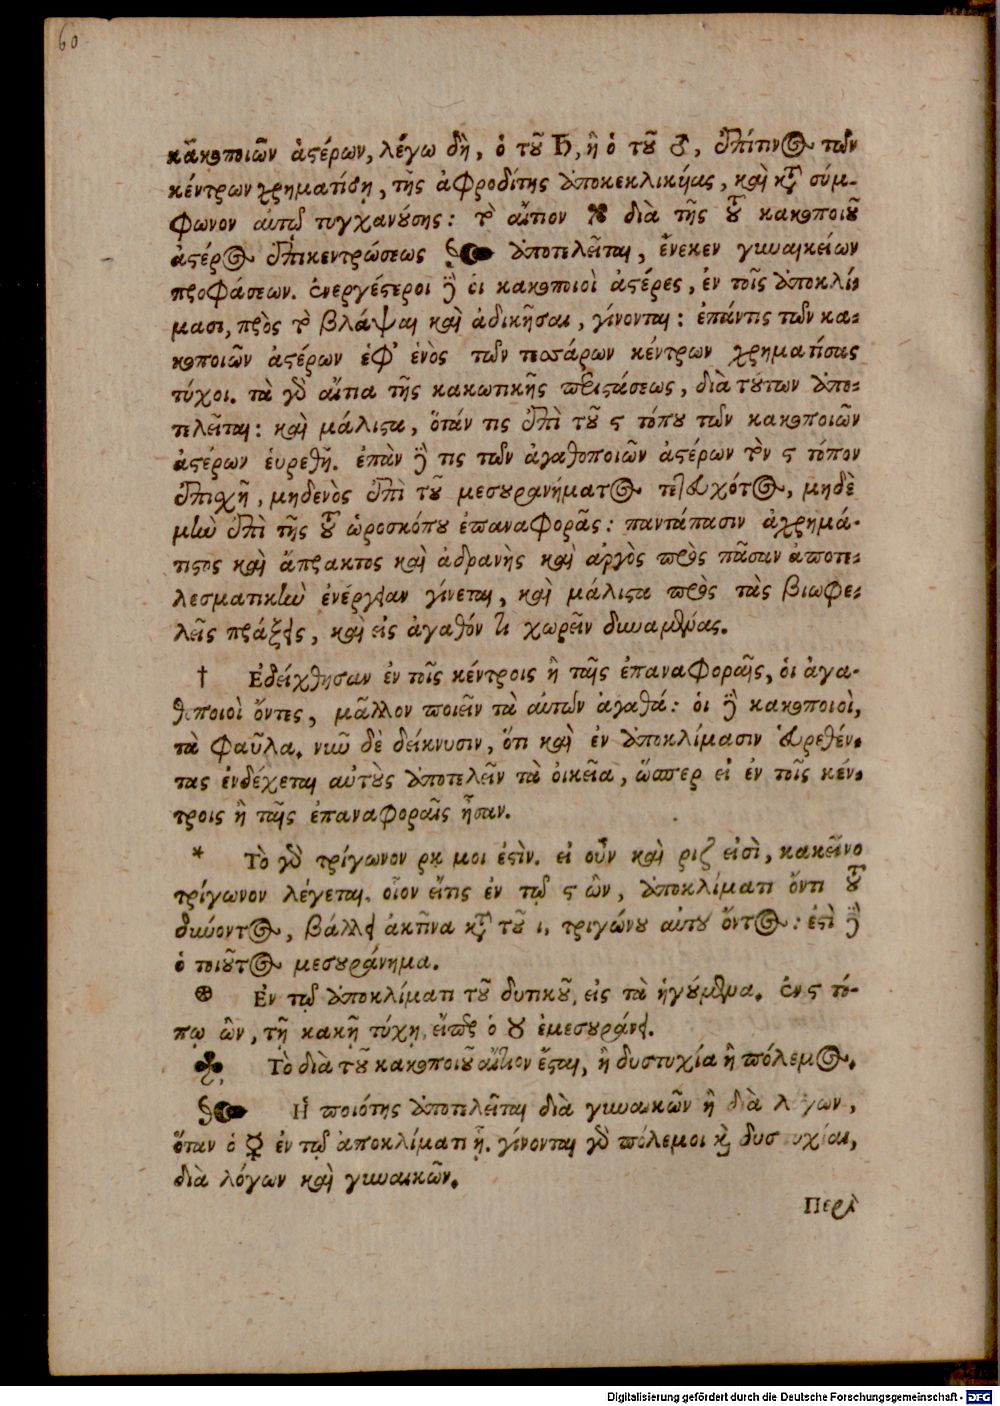 60
κακοποιῶν ἀστέρων, λέγω δὴ, ὁ τοῦ ♄, ἢ ὁ τοῦ ♂, ἐπίτινος τῶν
κέντρων χρηματίσῃ, τῆς ἀφροδίτης ἀποκεκλικυίας, καὶ κατὰ σύμ-
φωνον αὐτῷ τυγχανούσης: τὸ αἴτιον ✤ διὰ τῆς τοῦ κακοποιοῦ
ἀστέρος ἐπικεντρώσεως ☞ ἀποτελεῖται, ἕνεκεν γυναικείων
προφάσεων. ἐνεργέστεροι δὲ οἱ κακοποιοὶ ἀστέρες, ἐν τοῖς ἀποκλί-
μασι, πρὸς τὸ βλάψαι καὶ ἀδικῆσαι, γίνονται: ἐπάντις τῶν κα-
κοποιῶν ἀστέρων ἐφ' ἑνὸς τῶν τεσσάρων κέντρων χρηματίσας
τύχοι. τὰ γὰρ αἴτια τῆς κακωτικῆς περιστάσεως, διὰ τούτων ἀπο-
τελεῖται: καὶ μάλιστα, ὅτάν τις ἐπὶ τοῦ ϛ τόπου τῶν κακοποιῶν
ἀστέρων εὑρεθῆ. ἐπὰν δέ τις τῶν ἀγαθοποιῶν ἀστέρων τὸν ϛ τόπον
ἐπισχῆ, μηδενὸς ἐπὶ τοῦ μεσουρανήματος τετευχότος, μηδὲ
μὴν ἐπὶ τῆς τοῦ ὡροσκόπου ἐπαναφορᾶς: παντάπασιν ἀχρημά-
τιστος καὶ ἄπρακτος καὶ ἀδρανὴς καὶ ἀργὸς πρὸς πᾶσαν ἀποτε-
λεσματικὴν ἐνέργειαν γίνεται, καὶ μάλιστα πρὸς τὰς βιωφε-
λεῖς πράξεις, καὶ εἰς ἀγαθόν τι χωρεῖν δυναμένας.
† Ἐδείχθησαν ἐν τοῖς κέντροις ἢ ταῖς ἐπαναφοραῖς, ὁι ἀγα-
θοποιοὶ ὄντες, μᾶλλον ποιεῖν τὰ αὐτῶν ἀγαθά: ὁι δὲ κακοποιοὶ,
τὰ φαῦλα. νῦν δὲ δείκνυσιν, ὅτι καὶ ἐν ἀποκλίμασιν εὑρεθέν-
τας ἐνδέχεται αὐτοὺς ἀποτελεῖν τὰ ὀικεῖα, ὥσπερ εἰ ἐν τοῖς κέν-
τροις ἢ ταῖς ἐπαναφοραῖς ἦσαν.
* Τὸ γὰρ τρίγωνον ρκ μοι ἐστὶν. εἰ οὖν καὶ ριζ εἰσὶ, κακεῖνο
τρίγωνον λέγεται. οἷον εἴτις ἐν τῷ ϛ ὢν, ἀποκλίματι ὄντι τοῦ
δύνοντος, βάλλει ἀκτῖνα κατὰ τοῦ ι, τριγώνου αὐτοῦ ὄντος: ἐστὶ δὲ
ὁ τοιοῦτος μεσουράνημα.
⊕ Ἐν τῷ ἀποκλίματι τοῦ δυτικοῦ, εἰς τὰ ἡγούμενα. ἐν ϛ τό-
πῳ ὢν, τῇ κακῇ τύχῃ, εἴπερ ὁ ♉ ἐμεσουράνει.
♣ Τὸ διὰ τοῦ κακοποιοῦ αἴτιον ἔσται, ἢ δυστυχία ἢ πόλεμος.
☞ Ἡ ποιότης ἀποτελεῖται διὰ γυναικῶν ἢ διὰ λόγων,
ὅταν ὁ ☿ ἐν τῷ ἀποκλίματι ᾖ. γίνονται γὰρ πόλεμοι καὶ δυστυχίαι,
διὰ λόγων καὶ γυναικῶν.
Περὶ
Digitalisierung gefördert durch die Deutsche Forschungsgemeinschaft - DFG